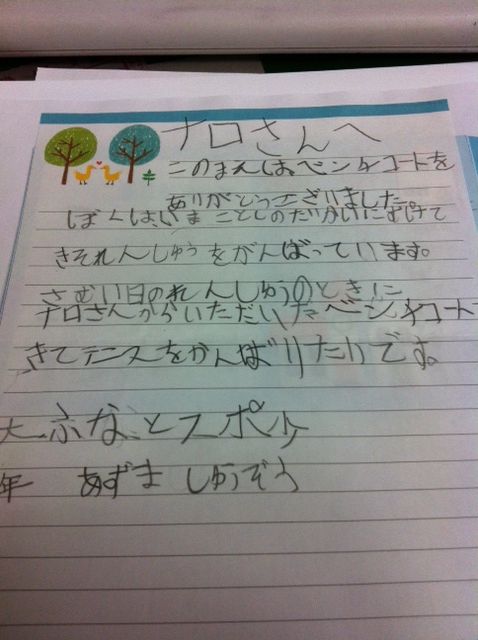 ナロさんへ
このまえは、ベンチコートを
ありがとうございました。
ぼくは、いま ことしのたいかいにむけて
きそれんしゅうをがんばっています。
さむい日のれんしゅうのときに
ナロさんからいただいたベンチコート
きてテニスをがんばりたいです。
大ふなとスポ少
年 あずま しゅうぞう